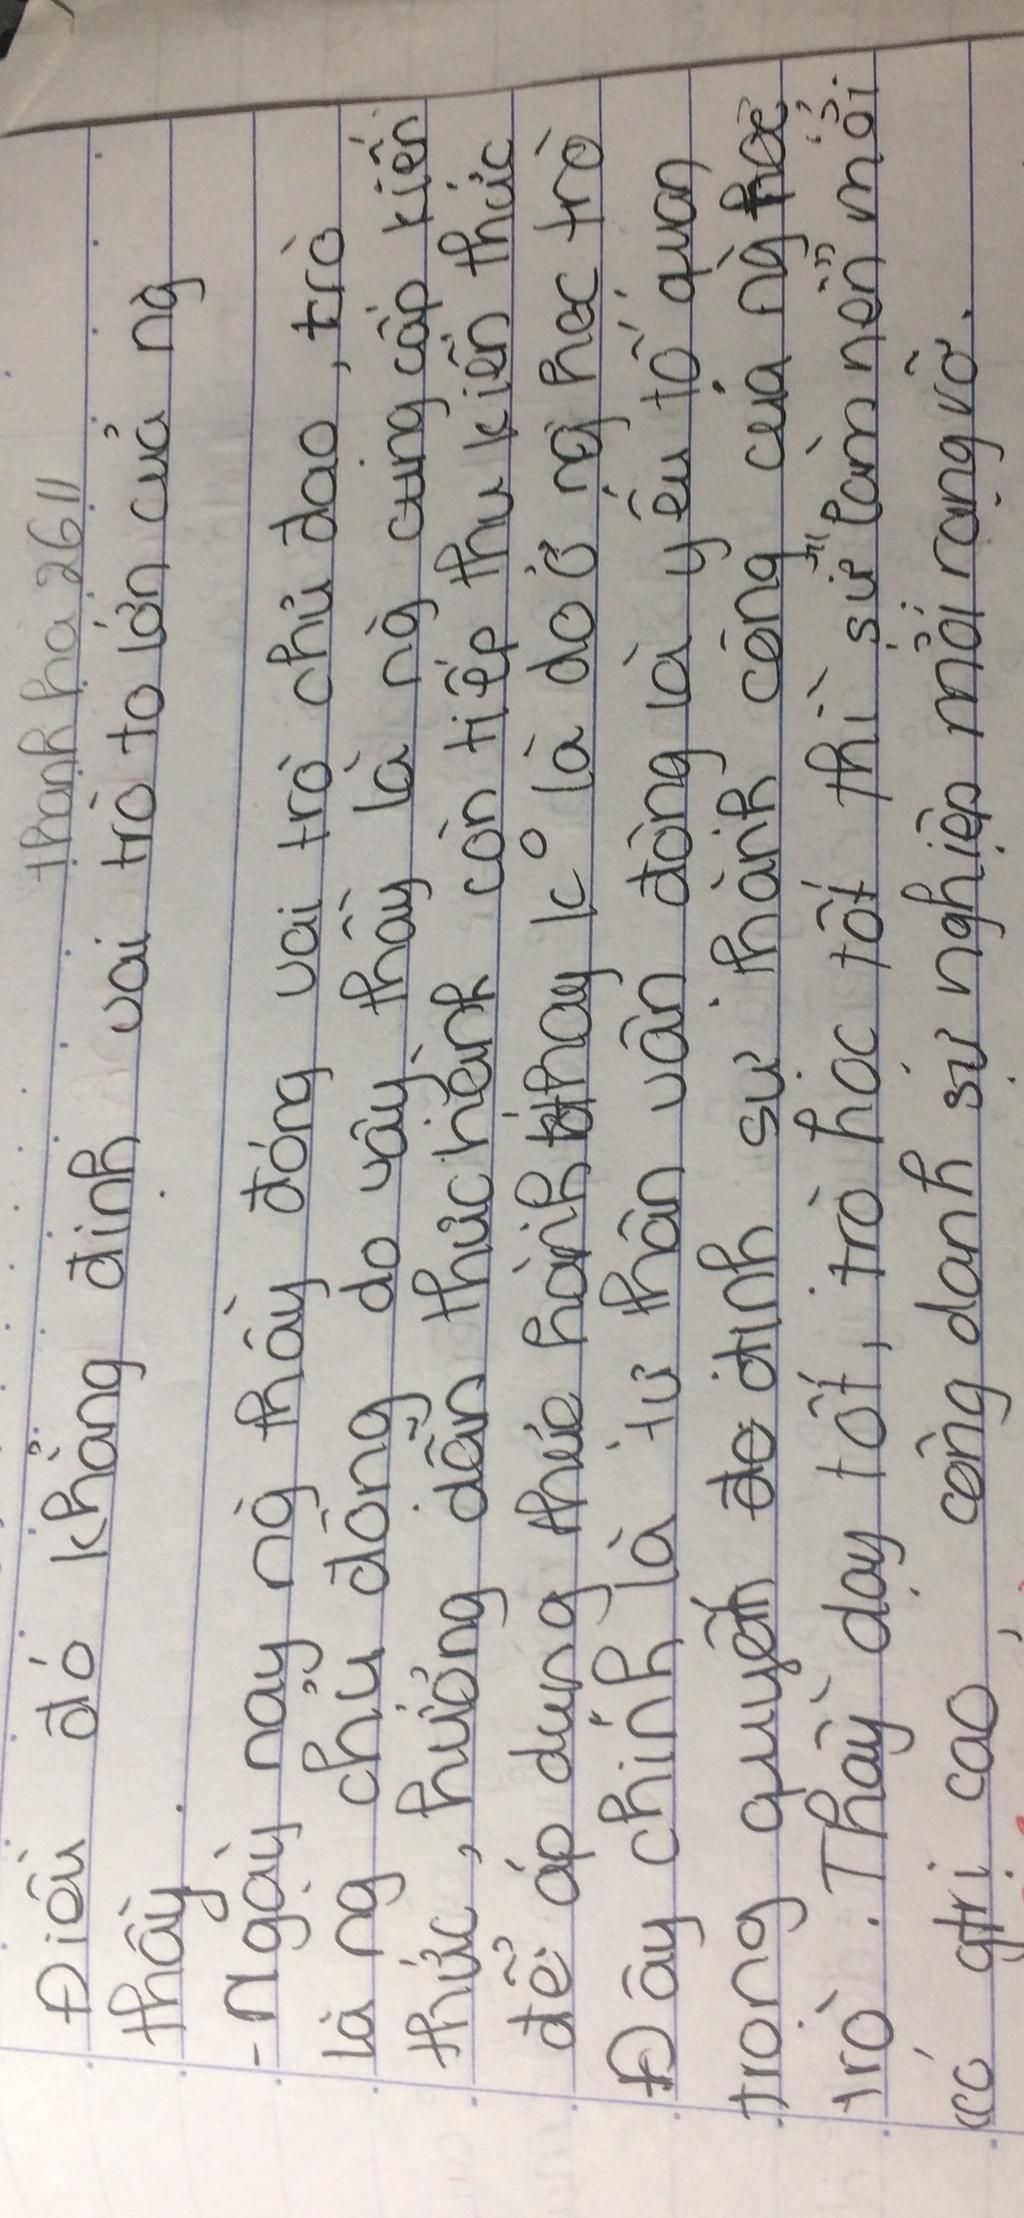 thanh ha 2611
Điều đó khẳng định vai trò to lớn của ng
thầy.
- Ngày nay ng thầy đóng vai trò chủ đạo, trò
là ng chủ động do vậy thầy là ng cung cấp kiến
thức, hướng dẫn thực hành còn tiếp thu kiến thức
để áp dụng thực hành hay k° là do ở ng học trò
Đây chính là tự thân vận động là yếu tố quan
trọng quyết định sự thành công của ng học
trò. Thầy dạy tốt, trò học tốt thì sẽ làm nên mới
có giá trị cao, công danh sự nghiệp mới rạng rỡ.